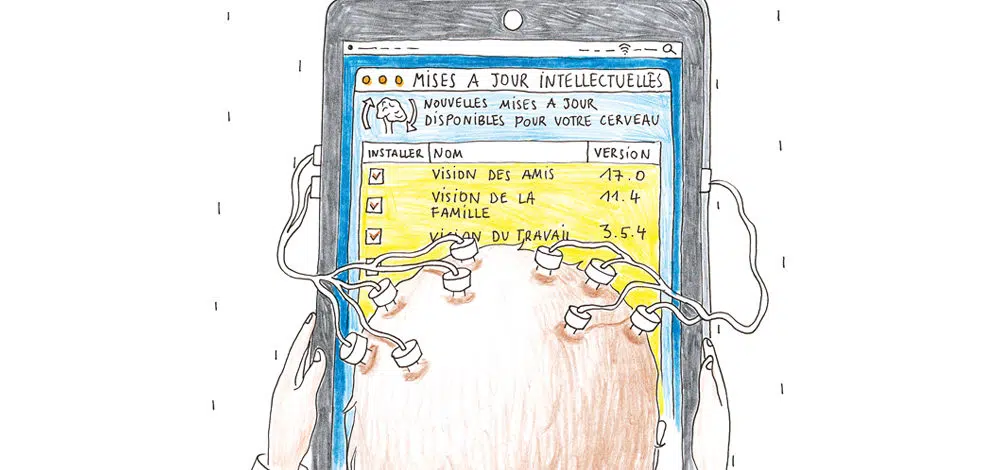 MISES A JOUR INTELLECTUELLES
NOUVELLES MISES A JOUR
DISPONIBLES POUR VOTRE CERVEAU
INSTALLER NOM VERSION
VISION DES AMIS 17.0
VISION DE LA 11.4
FAMILLE
VISION DU TRAVAIL 3.5.4